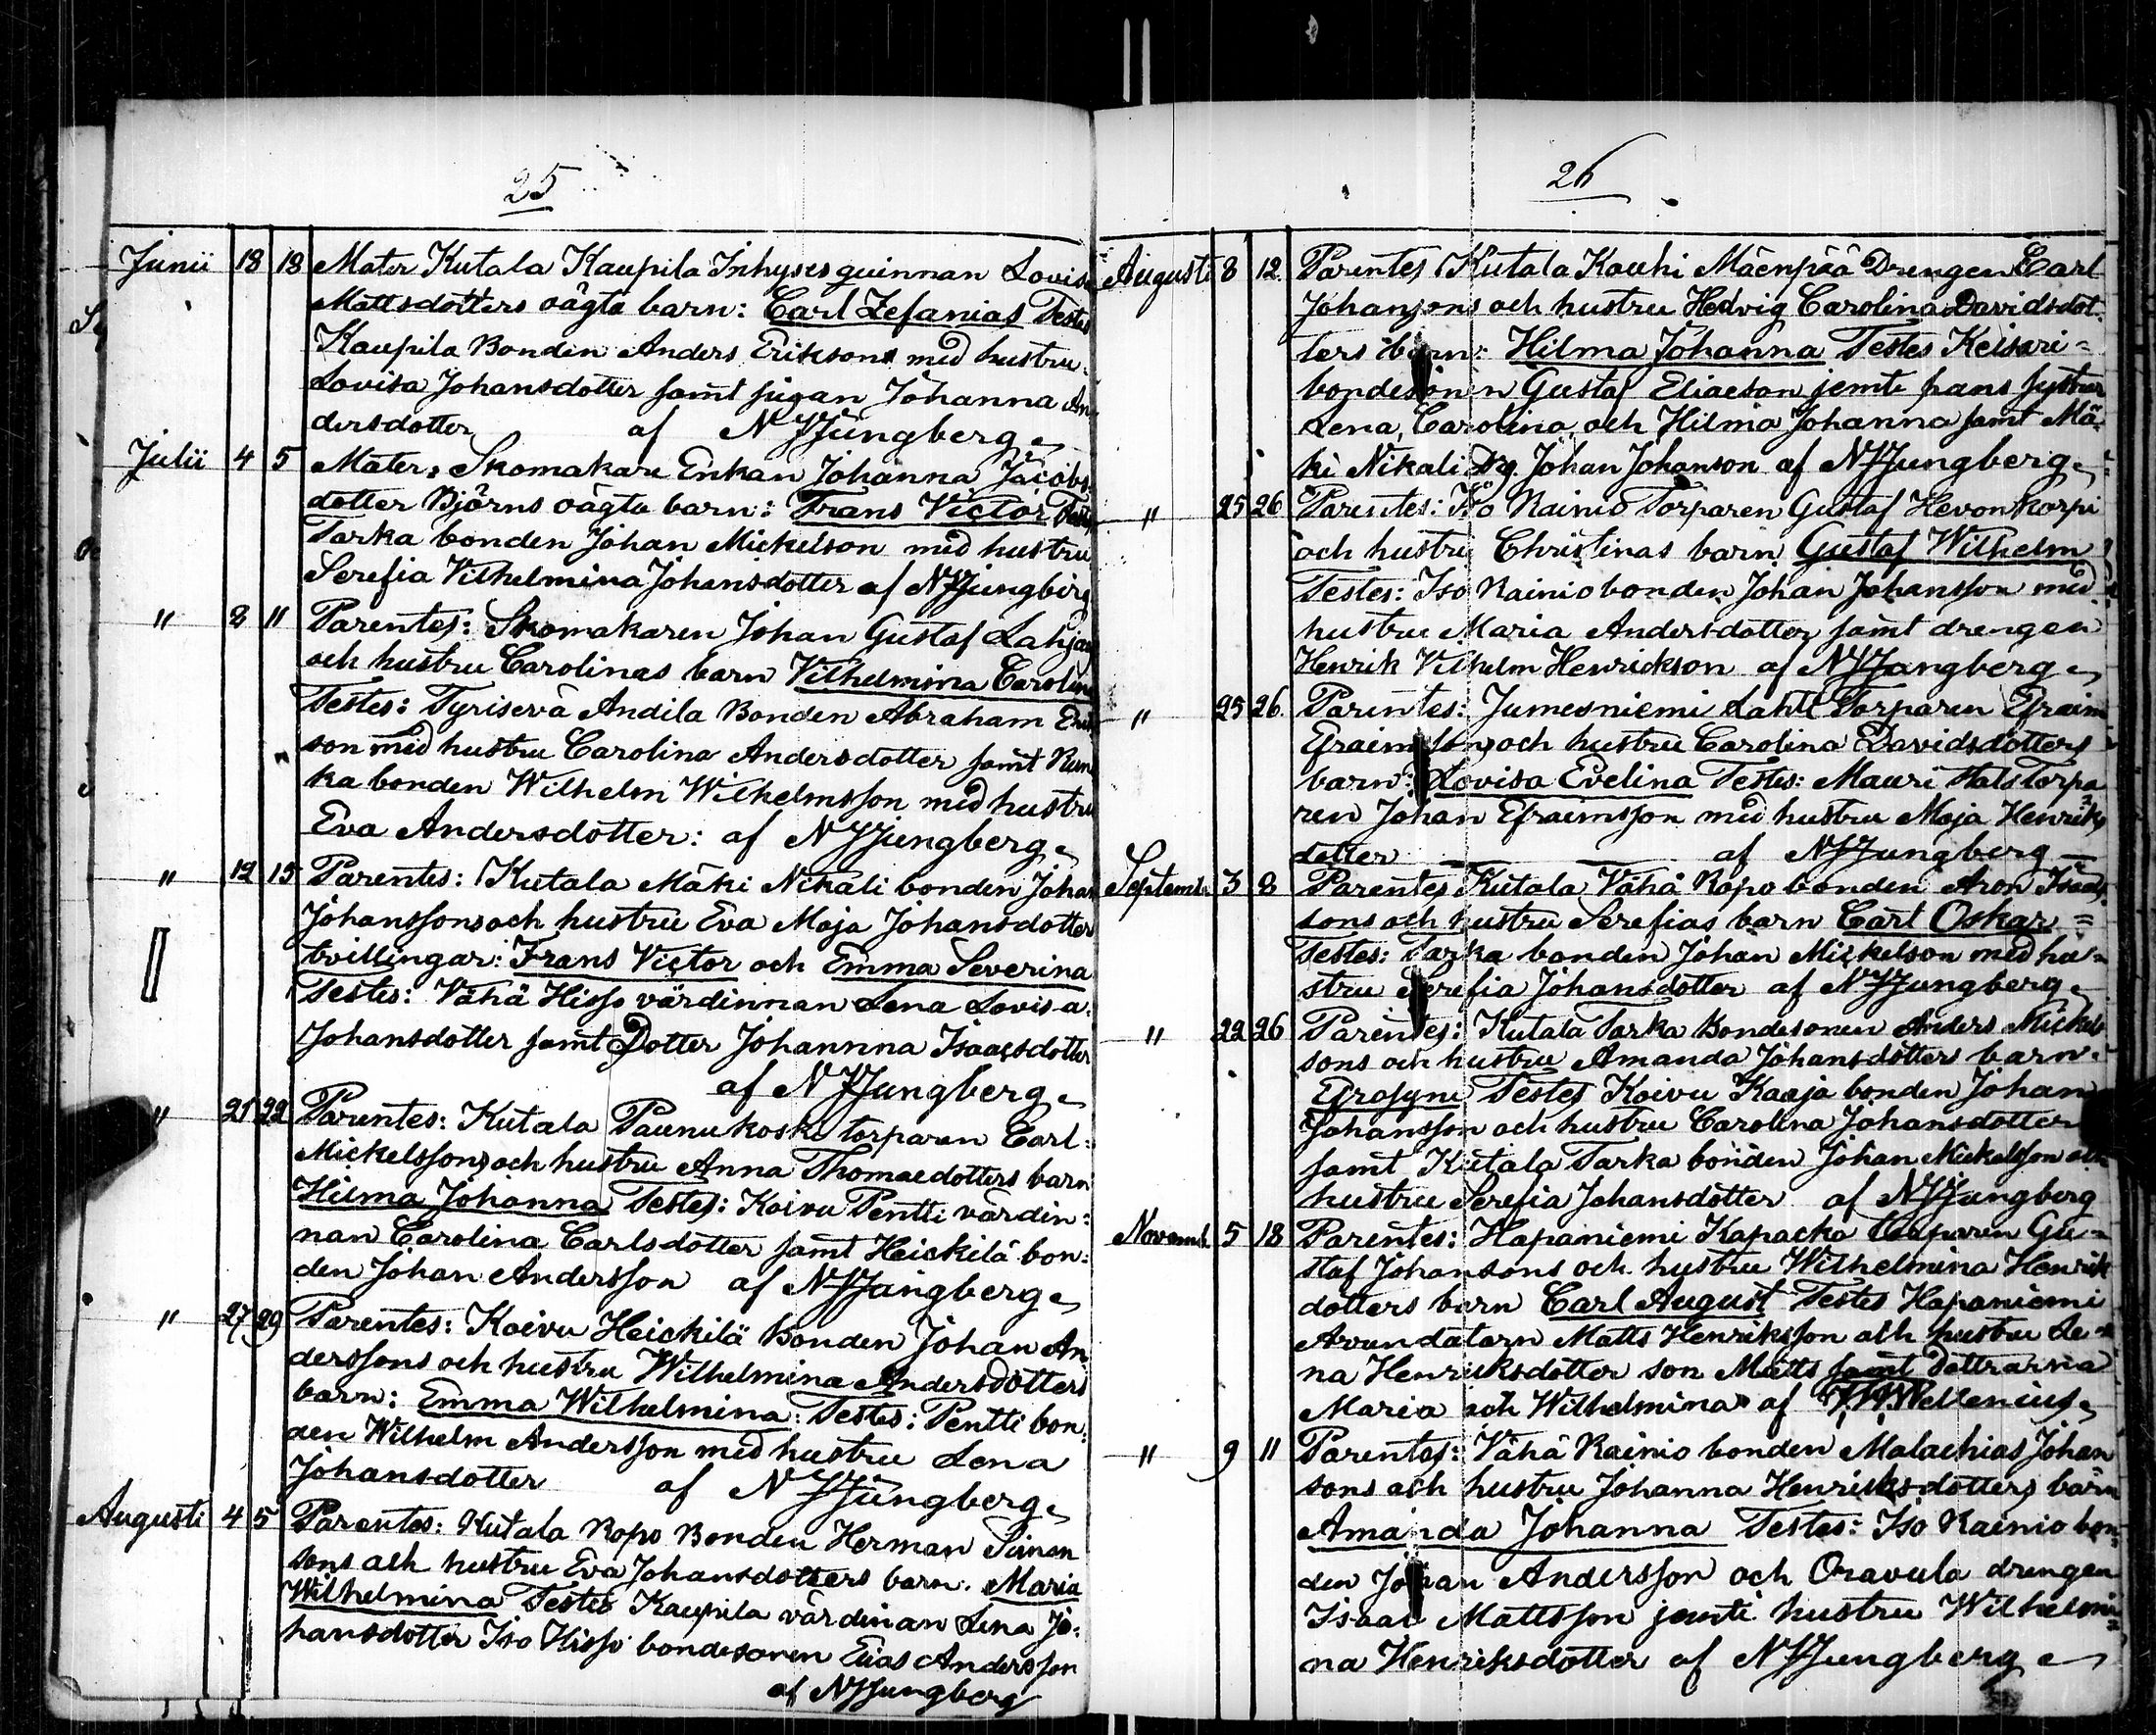 25
Junii 18 18 Mater Kutala Kaupila Inhyses quinnan Lovisa
Mattsdotters oägta barn: Carl Zefanias Testes
Kaupila Bonden Anders Eriksons med hustru
Lovisa Johansdotter samt pigan Johanna An
dersdotter af N Ljungberg
Julii 4 5 Mater, Skomakare Enkan Johanna Jacobs
dotter Björns oägta barn: Frans Victor Testes
Tarka bonden Johan Mickelson med hustru
Serefia Vilhelmina Johansdotter af N Ljungberg
" 8 11 Parentes: Skomakaren Johan Gustaf
och hustru Carolinas barn Vilhelmina Carolina
Testes: Tyrisevä Andila Bonden Abraham
son med hustru Carolina Andersdotter samt Run
ka bonden Wilhelm Wilhelmsson med hustru
Eva Andersdotter: af N Ljungberg
" 12 15 Parentes: Kutala Mäki Nikali bonden Johan
Johanssons och hustru Eva Maja Johansdotter
tvillingar: Frans Victor och Emma Severina
Testes: Vähä Hisso värdinnan Lena Lovisa
Johansdotter samt Dotter Johannna Isaacsdotter
af N Ljungberg
" 21 22 Parentes: Kutala Paunukoski torparen Carl
Mickelssons och hustru Anna Thomaedotters barn
Hilma Johanna Testes: Koivu Pentti värdin:
nan Carolina Carlsdotter samt Heickilä bon:
den Johan Andersson af N Ljungberg
" 27 29 Parentes: Koivu Heickilä Bonden Johan An
derssons och hustru Wilhelmina Andersdotters
barn: Emma Wilhelmina: Testes: Pentti bon:
den Wilhelm Andersson med hustru Lena
Johansdotter af N Ljungberg
Augusti 4 5 Parentes: Kutala Ropo Bonden Herman Simon
sons och hustru Eva Johansdotters barn. Maria
Wilhelmina Testes Kaupila värdinan Lena Jo:
hansdotter Iso Hisso bondesonen Elias Andersson
af N Ljungberg
26
Augusti 8 12. Parentes Kutala Kouhi Mäenpää Drengen Carl
Johansons och hustru Hedvig Carolina Davidsdot.
ters barn: Hilma Johanna Testes Keisari=
bondesonen Gustaf Eliaeson jemte hans systrar
Lena, Carolina, och Hilma Johanna samt Mä
ki Nikali Dg. Johan Johanson af N Ljungberg
" 25 26 Parentes: Iso Rainio Torparen Gustaf Hevonkorpi
och hustru Christinas barn Gustaf Wilhelm
Testes: Iso Rainio bonden Johan Johansson med
hustru Maria Andersdotter samt drengen
Henrik Vilhelm Henrickson af N Ljungberg
" 25 26. Parentes: Jumesniemi Lahti Torparen Efraim
Efraimssons och hustru Carolina Davidsdotters
barn: Lovisa Evelina Testes: Mauri Torpa
ren Johan Efraimsson med hustru Maja Henriks
dotter af N Ljungberg
Septemb. 3 8 Parentes Kutala Vähä Ropo bonden Aron Isaac
sons och hustru Serefias barn Carl Oskar =
Testes: Tarka bonden Johan Mickelson med hu=
stru Serefia Johansdotter af N Ljungberg
" 22 26 Parentes: Kutala Tarka Bondesonen Anders Mickel
sons och hustru Amanda Johansdotters barn
Efrosyne Testes Koivu Kaaja bonden Johan
Johansson och hustru Carolina Johansdotter
samt Kutala Tarka bonden Johan Mickelsson och
hustru Serefia Johansdotter af N Ljungberg
Novemb. 5 18 Parentes: Hapaniemi Kapacka torparen Gu=
staf Johansons och hustru Wilhelmina Henrik
dotters barn Carl August Testes Hapaniemi
Arundatorn Matts Henriksson och hustru Le=
na Henriksdotter son Matts samt Dottrarna
Maria och Wilhelmina af Wellenius
" 9 11 Parentes: Vähä Rainio bonden Malachias Johan
sons och hustru Johanna Henriksdotters barn
Amanda Johanna Testes: Iso Rainio bon=
den Johan Andersson och Oravula drengen
Isaac Mattsson jemte hustru Wilhelmi
na Henriksdotter af N Ljungberg